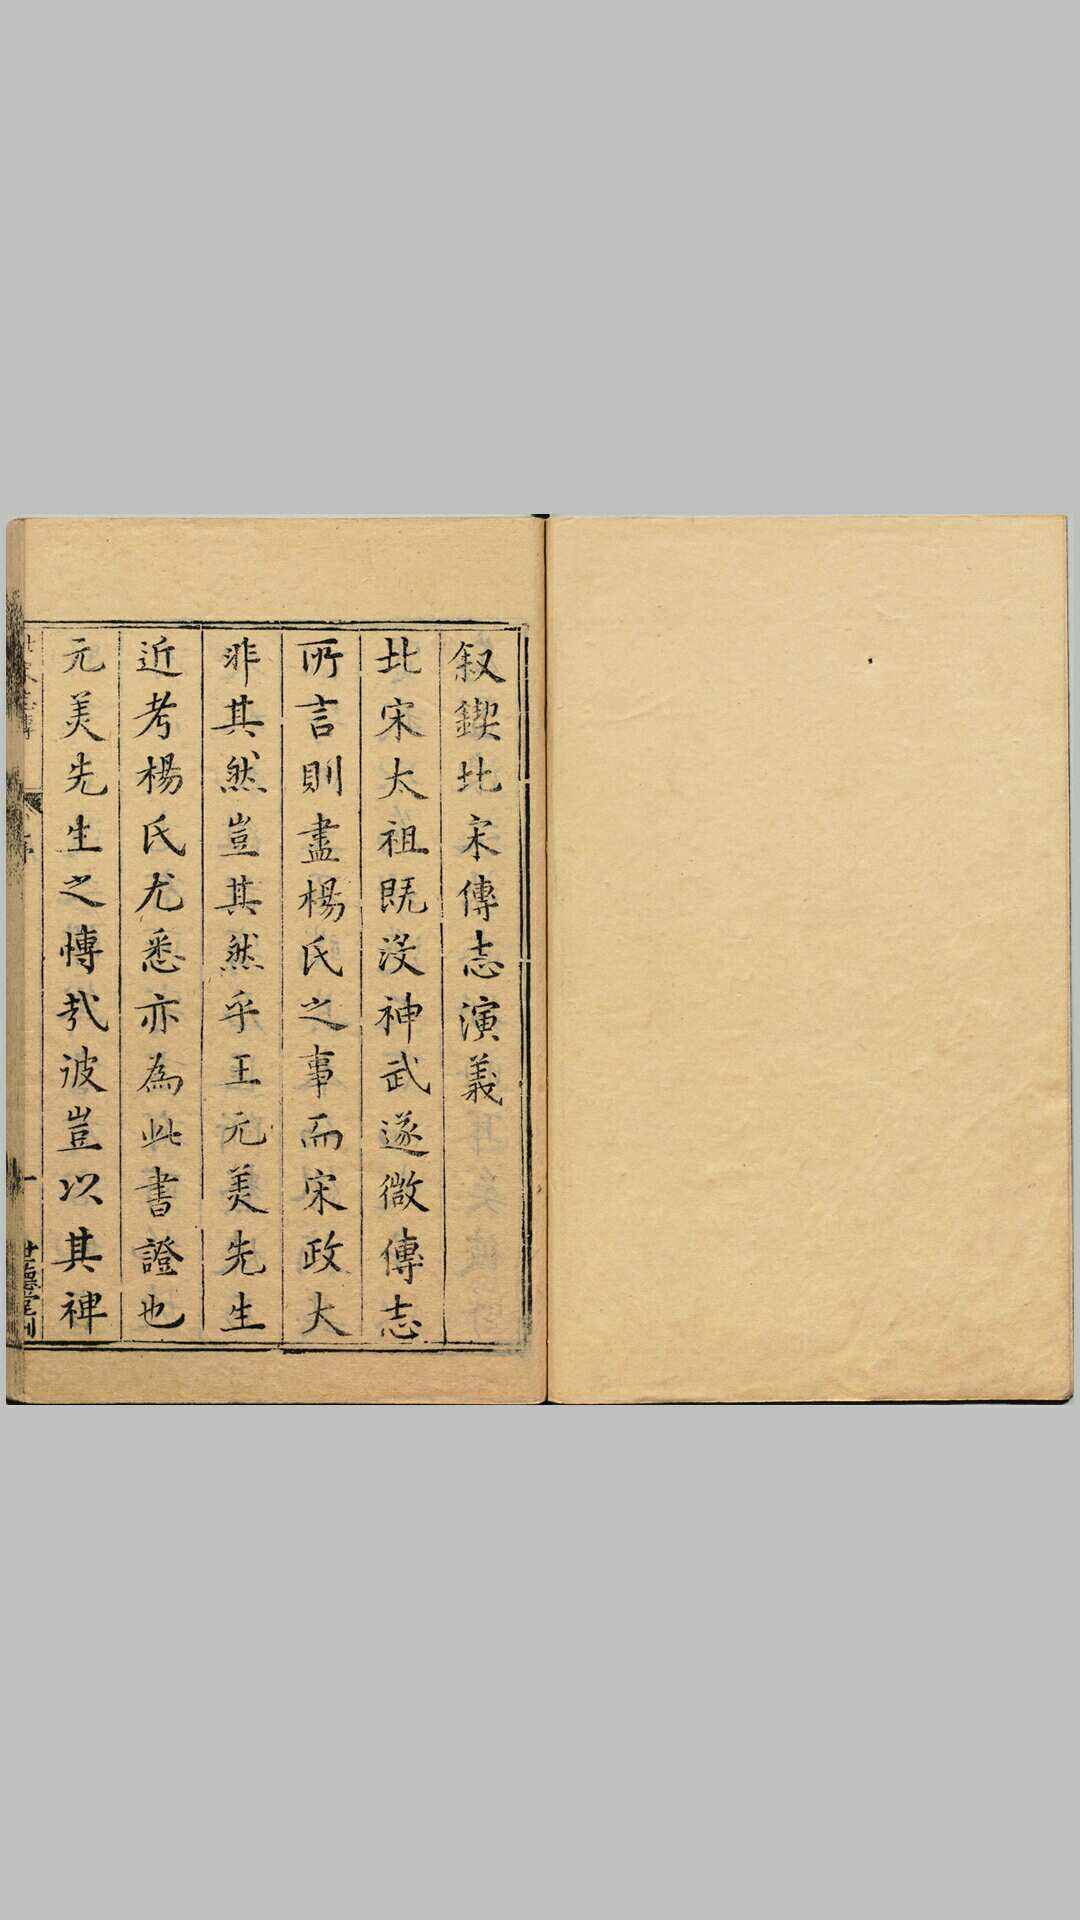 叙鍥北宋傳志演義
北宋太祖既沒神武遂微傳志
所言則盡楊氏之事而宋政大
非其然豈其然乎王元美先生
近考楊氏尤悉亦為此書證也
元美先生之慱㢤彼豈以其裨
世德堂刊